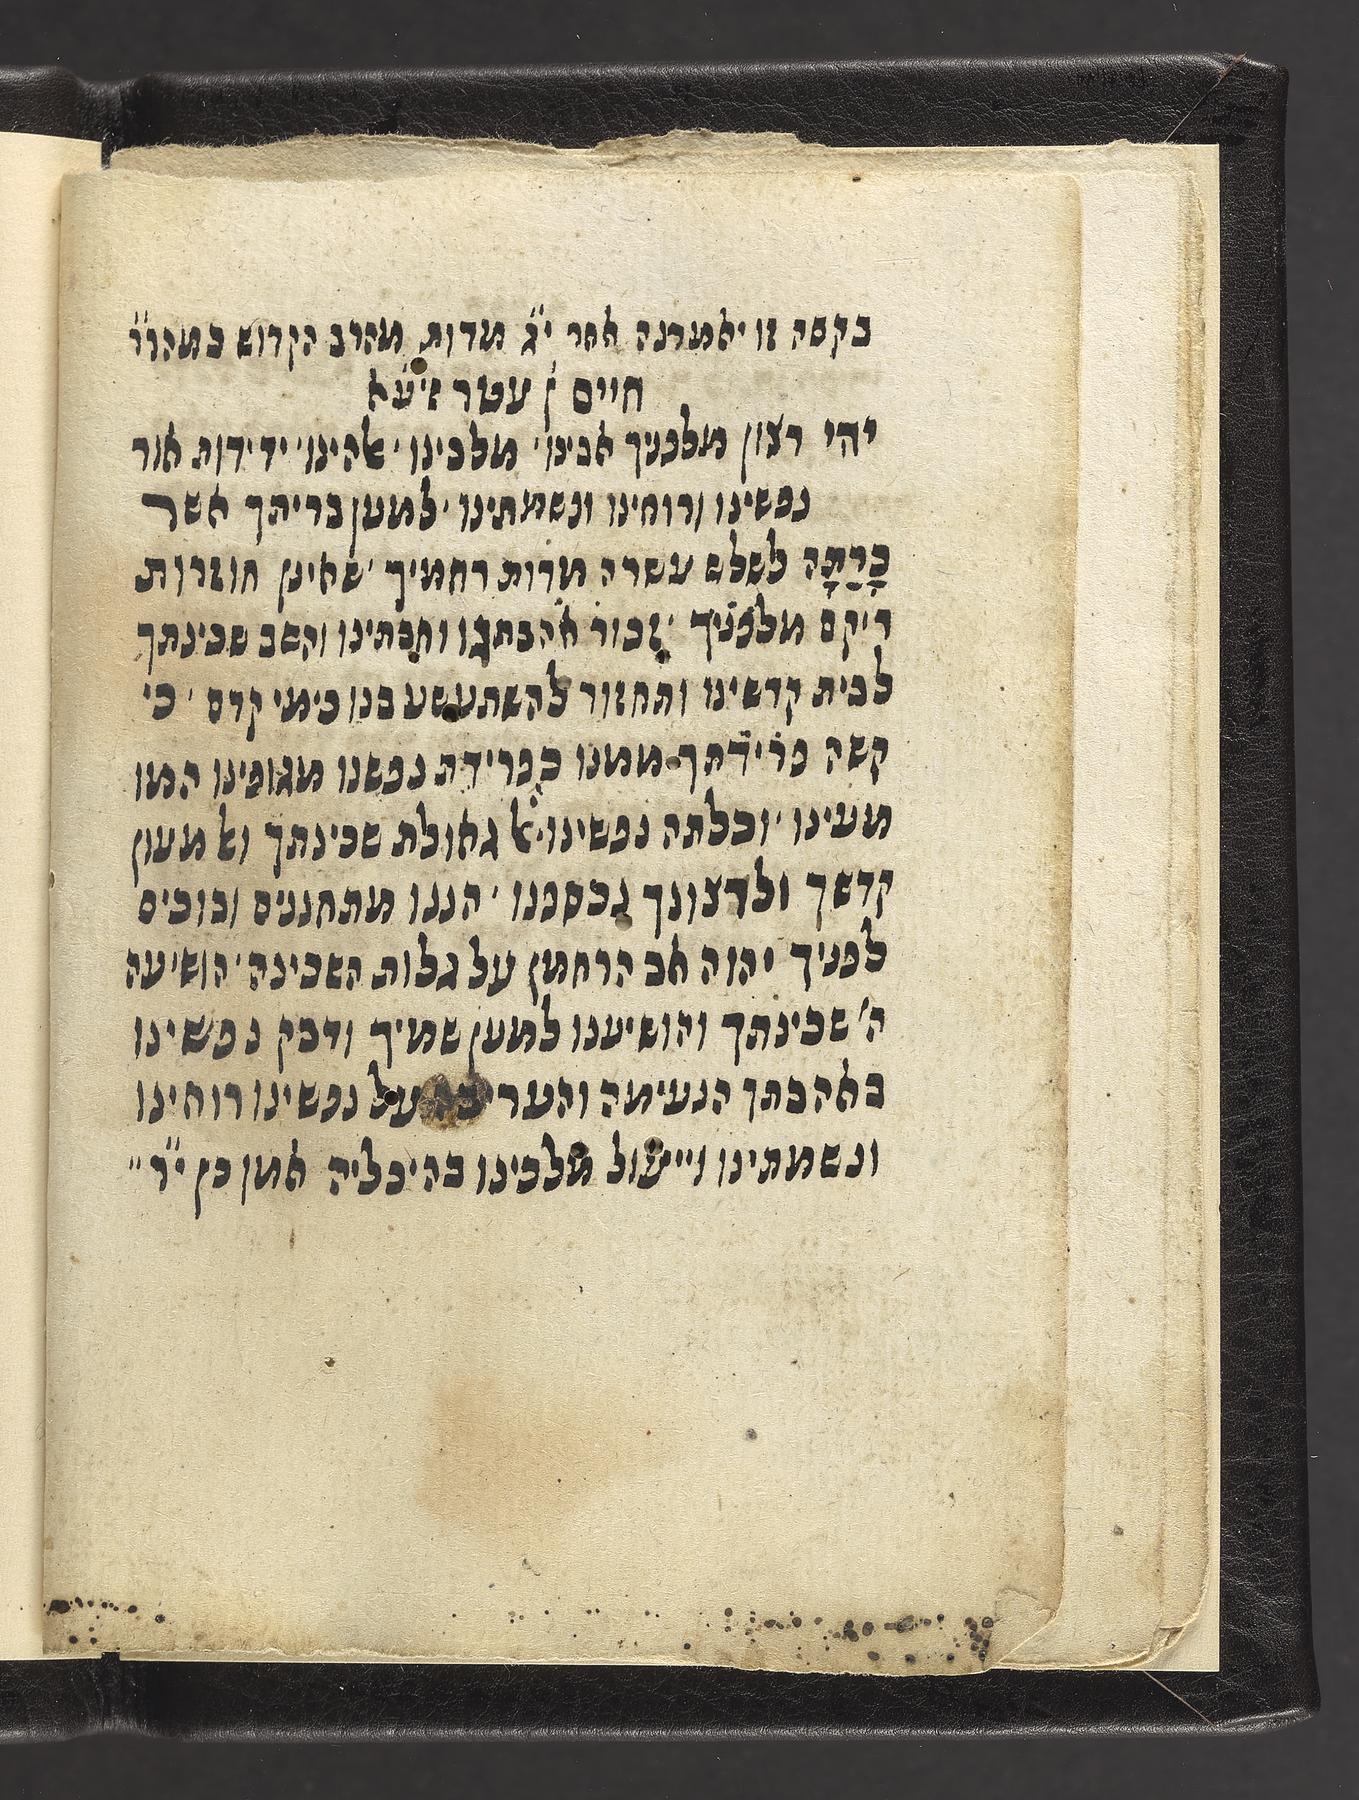 בקשה זו יאמרנה אחר י״ג מדות מהרב הקדוש כמהר״ר
חיים ן׳ עטר זי״עא
יהי רצון מלפניך אבינו׳ מלכינו׳ אלהינו׳ ידידות אור
נפשינו ורוחינו ונשמתינו׳ למען בריתך אשר
כָּרַתָּה לשלש עשרה מדות רחמיך׳ שאינן חוזרות
ריקם מלפניך׳ זכור אהבתנו וחבתינו והשב שכינתך
לבית קדשינו ותחזור להשתעשע בנו כימי קדם׳ כי
קשה פרידתך ממנו כפרידת נפשנו מגופינו המו
מעינו׳ וכלתה נפשינו׳ אל גאולת שכינתך ואל מעון
קדשך ולרצונך נכספנו׳ הננו מתחננים ובוכים
לפניך יהוה אב הרחמן על גלות השכינה׳ הושיעה
ה׳ שכינתך והושיענו למען שמיך ודבק נפשינו
באהבתך הנעימה והער על נפשינו רוחינו
ונשמתינו וייעול מלכינו בהיכליה אמן כן י״ר״